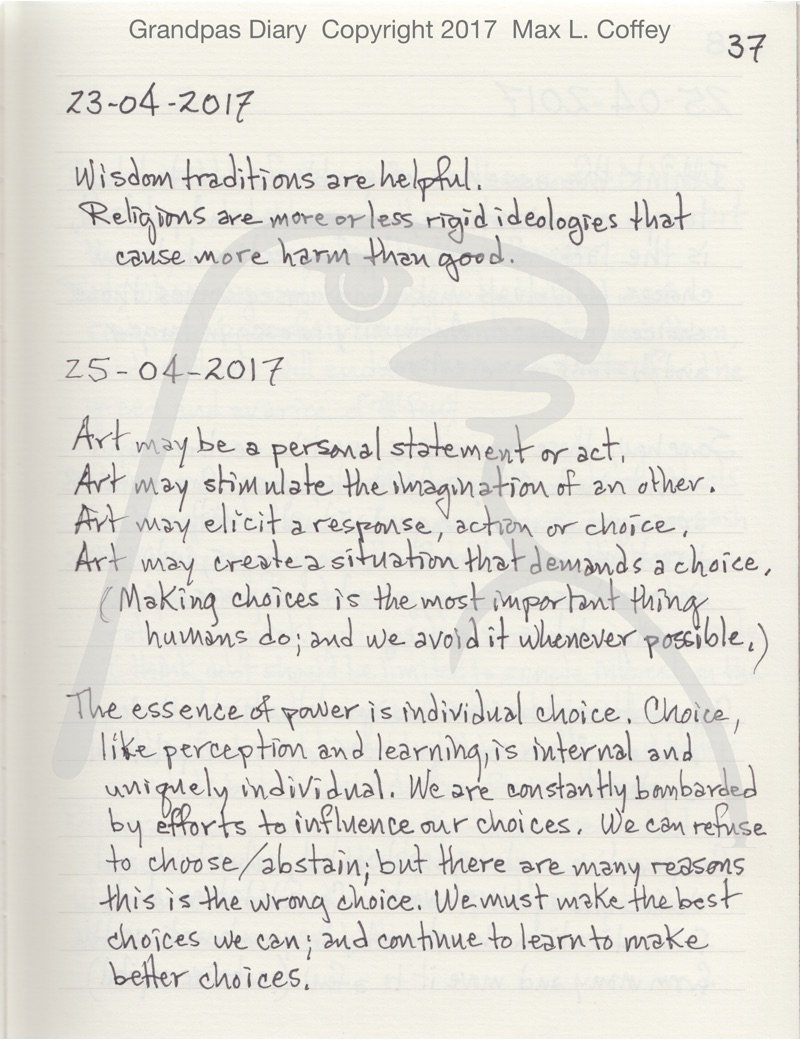 Grandpas Diary Copyright 2017 Max L. Coffey
37
23-04-2017
Wisdom traditions are helpful.
Religions are more or less rigid ideologies that
cause more harm than good.
25-04-2017
Art may be a personal statement or act.
Art may stimulate the imagination of an other.
Art may elicit a response, action or choice.
Art may create a situation that demands a choice.
(Making choices is the most important thing
humans do; and we avoid it whenever possible.)
The essence of power is individual choice. Choice,
like perception and learning, is internal and
uniquely individual. We are constantly bombarded
by efforts to influence our choices. We can refuse
to choose/abstain; but there are many reasons
this is the wrong choice. We must make the best
choices we can; and continue to learn to make
better choices.